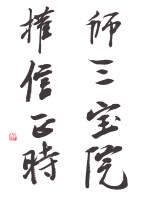 師三宝院
権信正時